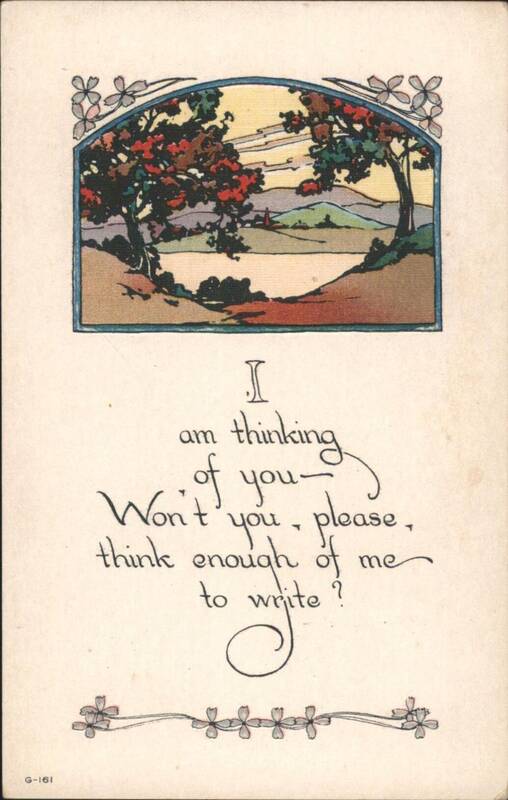 I
am thinking
of you—
Won't you, please,
think enough of me
to write?
G-161